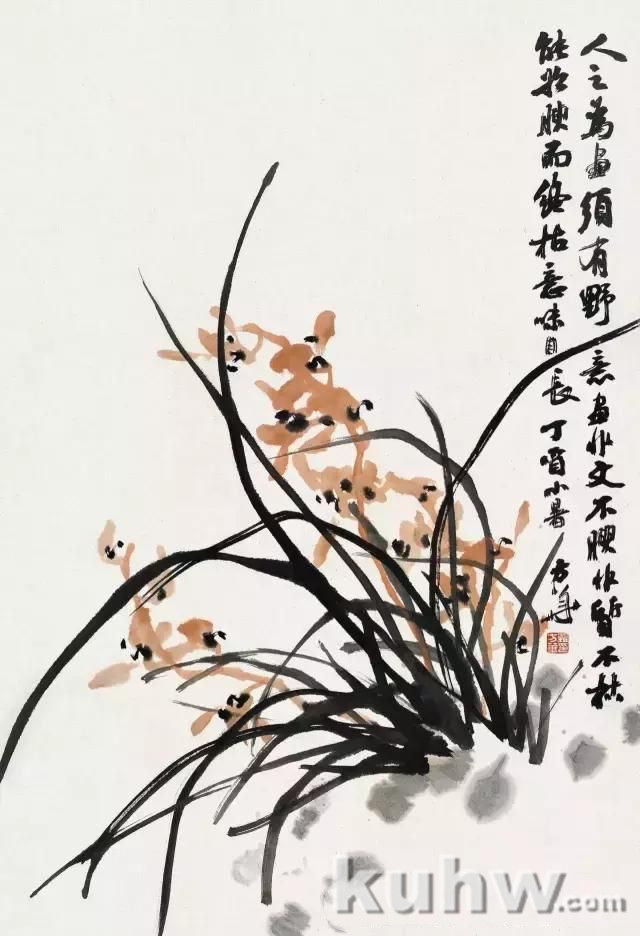 人之為畫須有野意畫水文不腴水皙不枯
能於腴而絡枯意味自長丁酉小暑方華
kuhw.com